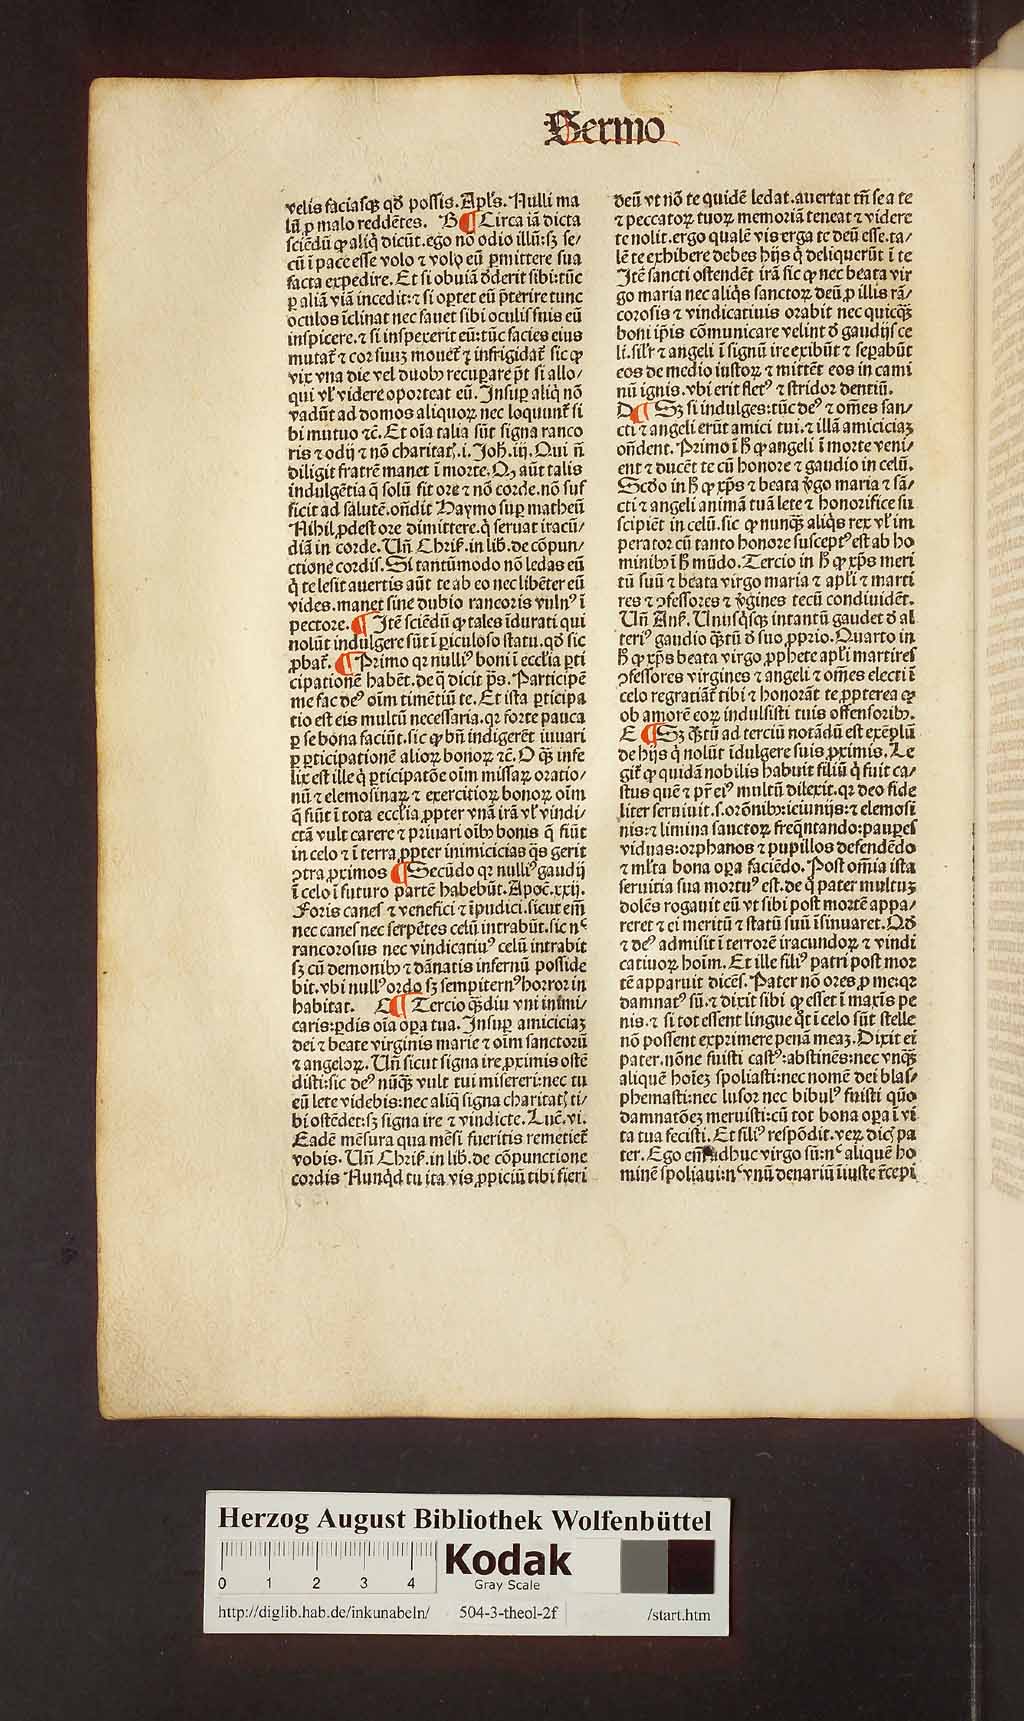 Sermo
velis faciasqꝫ qđ possis. Apl's. Nulli ma
lū ꝓ malo reddētes. B ¶ Circa iā dicta
sciēdū ꝙ aliq̇ dicūt. ego nō odio illū: sꝫ se/
cū ī pace esse volo ⁊ volo eū ꝑmittere sua
facta expedire. Et si obuiā ꝺ̄derit sibi: tūc
ꝑ aliā viā incedit: ⁊ si oꝑtet eū p̄terire tunc
oculos īclinat nec fauet sibi oculis suis eū
inspicere. ⁊ si inspexerit eū: tūc facies eius
mutat᷑ ⁊ cor suuꝫ mouet᷑ ⁊ infrigidat᷑ sic ꝙ
vix vna die vel duobꝰ recuꝑare pn̄t si allo/
qui vl' videre oporteat eū. Insuꝑ aliq̇ nō
vadūt ad domos aliquoꝝ nec loquunt᷑ si
bi mutuo ⁊c̄. Et oīa talia sūt signa ranco
ris ⁊ odij ⁊ nō charitatꝭ. i. Joħ. iij. Qui nō
diligit fratrē manet ī morte. Qꝙ aūt talis
indulgētia q̄ solū fit ore ⁊ nō corde. nō suf
ficit ad salutē. oñdit Haymo suꝑ matheū
Nihil ꝓdest ore dimittere. q̇ seruat iracū/
diā in corde. Uñ Chriẜ. in lib. de cōpun/
ctione cordis. Si tantūmodo nō ledas eū
q̇ te lesit auertis aūt te ab eo nec libēter eū
vides. manet sine dubio rancoris vulnꝰ ī
pectore. ¶ Itē sciēdū ꝙ tales īdurati qui
nolūt indulgere sūt ī ꝑiculoso statu. qđ sic
ꝓbat᷑. ¶ Primo qꝛ nulliꝰ boni ī ecclīa ꝑti
cipationē habēt. de q̇ dicit p̄s. Participē
me fac deꝰ oīm timētiū te. Et ista ꝑticipa
tio est eis multū necessaria. qꝛ forte pauca
ꝑ se bona faciūt. sic ꝙ bñ indigerēt iuuari
ꝑ ꝑticipationē alioꝝ bonoꝝ ⁊c̄. O q̄ꝫ infe
lix est ille q̇ ꝑticipatōe oīm missaꝝ oratio/
nū ⁊ elemosinaꝝ ⁊ exercitioꝝ bonoꝝ oīm
q̄ fiūt ī tota ecclīa ꝓpter vnā irā vl' vindi/
ctā vult carere ⁊ priuari oībꝰ bonis q̄ fiūt
in celo ⁊ ī terra ꝓpter inimicicias q̄s gerit
ꝯtra ꝓximos ¶ Secūdo qꝛ nulliꝰ gaudij
ī celo ī futuro partē habebūt. Apoc̄. xxij.
Foris canes ⁊ venefici ⁊ īpudici. sicut em̄
nec canes nec serpētes celū intrabūt. sic nᶜ
rancorosus nec vindicatiuꝰ celū intrabit
sꝫ cū demonibꝰ ⁊ dānatis infernū posside
bit. vbi nullꝰ ordo sꝫ sempiternꝰ horror in
habitat. C ¶ Tercio q̄ꝫdiu vni inimi/
caris: ꝑdis oīa oꝑa tua. Insuꝑ amiciciaꝫ
dei ⁊ beate virginis marie ⁊ oīm sanctorū
⁊ angeloꝝ. Uñ sicut signa ire ꝓximis ostē
disti: sic deꝰ nūq̄ꝫ vult tui misereri: nec tu
eū lete videbis: nec aliq̄ signa charitatꝭ ti/
bi ostēdet: sꝫ signa ire ⁊ vindicte. Luc̄. vi.
Eadē mēsura qua mēsi fueritis remetiet᷑
vobis. Uñ Chriẜ. in lib. de cōpunctione
cordis Nunq̇d tu ita vis ꝓpiciū tibi fieri
deū vt nō te quidē ledat. auertat tñ se a te
⁊ peccatoꝝ tuoꝝ memoriā teneat ⁊ videre
te nolit. ergo qualē vis erga te deū esse. ta/
lē te exhibere debes hijs q̇ deliquerūt ī te
Itē sancti ostendēt irā sic ꝙ nec beata vir
go maria nec aliq̇s sanctoꝝ deū ꝓ illis rā/
corosis ⁊ vindicatiuis orabit nec quicq̄ꝫ
boni ip̄is cōmunicare velint ꝺ̄ gaudijs ce
li. sil'r ⁊ angeli ī signū ire exibūt ⁊ seꝑabūt
eos de medio iustoꝝ ⁊ mittēt eos in cami
nū ignis. vbi erit fletꝰ ⁊ stridor dentiū.
D ¶ Sꝫ si indulges: tūc deꝰ ⁊ om̄es san/
cti ⁊ angeli erūt amici tui. ⁊ illā amiciciaꝫ
oñdent. Primo ī ħ ꝙ angeli ī morte veni/
ent ⁊ ducēt te cū honore ⁊ gaudio in celū.
Scđo in ħ ꝙ xp̄s ⁊ beata v̇go maria ⁊ sā/
cti ⁊ angeli animā tuā lete ⁊ honorifice su
scipiēt in celū. sic ꝙ nunq̄ꝫ aliq̇s rex vl' im
perator cū tanto honore susceptꝰ est ab ho
minibꝰ ī ħ mūdo. Tercio in ħ ꝙ xp̄s meri
tū suū ⁊ beata virgo maria ⁊ apl'i ⁊ marti
res ⁊ ꝯfessores ⁊ v̇gines tecū condiuidēt.
Uñ Anẜ. Unusq̇sqꝫ intantū gaudet ꝺ̄ al
teriꝰ gaudio q̄ꝫtū ꝺ̄ suo ꝓprio. Quarto in
ħ ꝙ xp̄s beata virgo ꝓphete apl'i martires
ꝯfessores virgines ⁊ angeli ⁊ om̄es electi ī
celo regratiāt᷑ tibi ⁊ honorāt te ꝓpterea ꝙ
ob amorē eoꝝ indulsisti tuis offensoribꝰ.
E ¶ Sꝫ q̄ꝫtū ad terciū notādū est exēplū
de hijs q̇ nolūt īdulgere suis ꝓximis. Le
git᷑ ꝙ quidā nobilis habuit filiū q̇ fuit ca/
stus quē ⁊ pr̄ eiꝰ multū dilexit. qꝛ deo fide
liter seruiuit. s. orōnibꝰ: ieiunijs: ⁊ elemosi
nis: ⁊ limina sanctoꝝ freq̄ntando: pauꝑes
viduas: orphanos ⁊ pupillos defendēdo
⁊ ml'ta bona oꝑa faciēdo. Post om̄ia ista
seruitia sua mortuꝰ est. de q̇ pater multuꝫ
dolēs rogauit eū vt sibi post mortē appa/
reret ⁊ ei meritū ⁊ statū suū īsinuaret. Qđ
⁊ deꝰ admisit ī terrorē iracundoꝝ ⁊ vindi
catiuoꝝ hoīm. Et ille filiꝰ patri post mor
tē apparuit dicēs. Pater nō ores ꝓ me: qꝛ
damnatꝰ sū. ⁊ dixit sibi ꝙ esset ī maxīs pe
nis. ⁊ si tot essent lingue q̇t ī celo sūt stelle
nō possent exprimere penā meaꝫ. Dixit ei
pater. nōne fuisti castꝰ: abstinēs: nec vnq̄ꝫ
aliquē hoīeꝫ spoliasti: nec nomē dei blas/
phemasti: nec lusor nec bibulꝰ fuisti quō
damnatōeꝫ meruisti: cū tot bona oꝑa ī vi
ta tua fecisti. Et filiꝰ respōdit. veꝝ dicꝭ pa
ter. Ego em̄ adhuc virgo sū: nᶜ aliquē ho
minē spoliaui: nᶜ vnū denariū īiuste r̄cepi
Herzog August Bibliothek Wolfenbüttel
0 1 2 3 4
Kodak
Gray Scale
http://diglib.hab.de/inkunabeln/ 504-3-theol-2f /start.htm